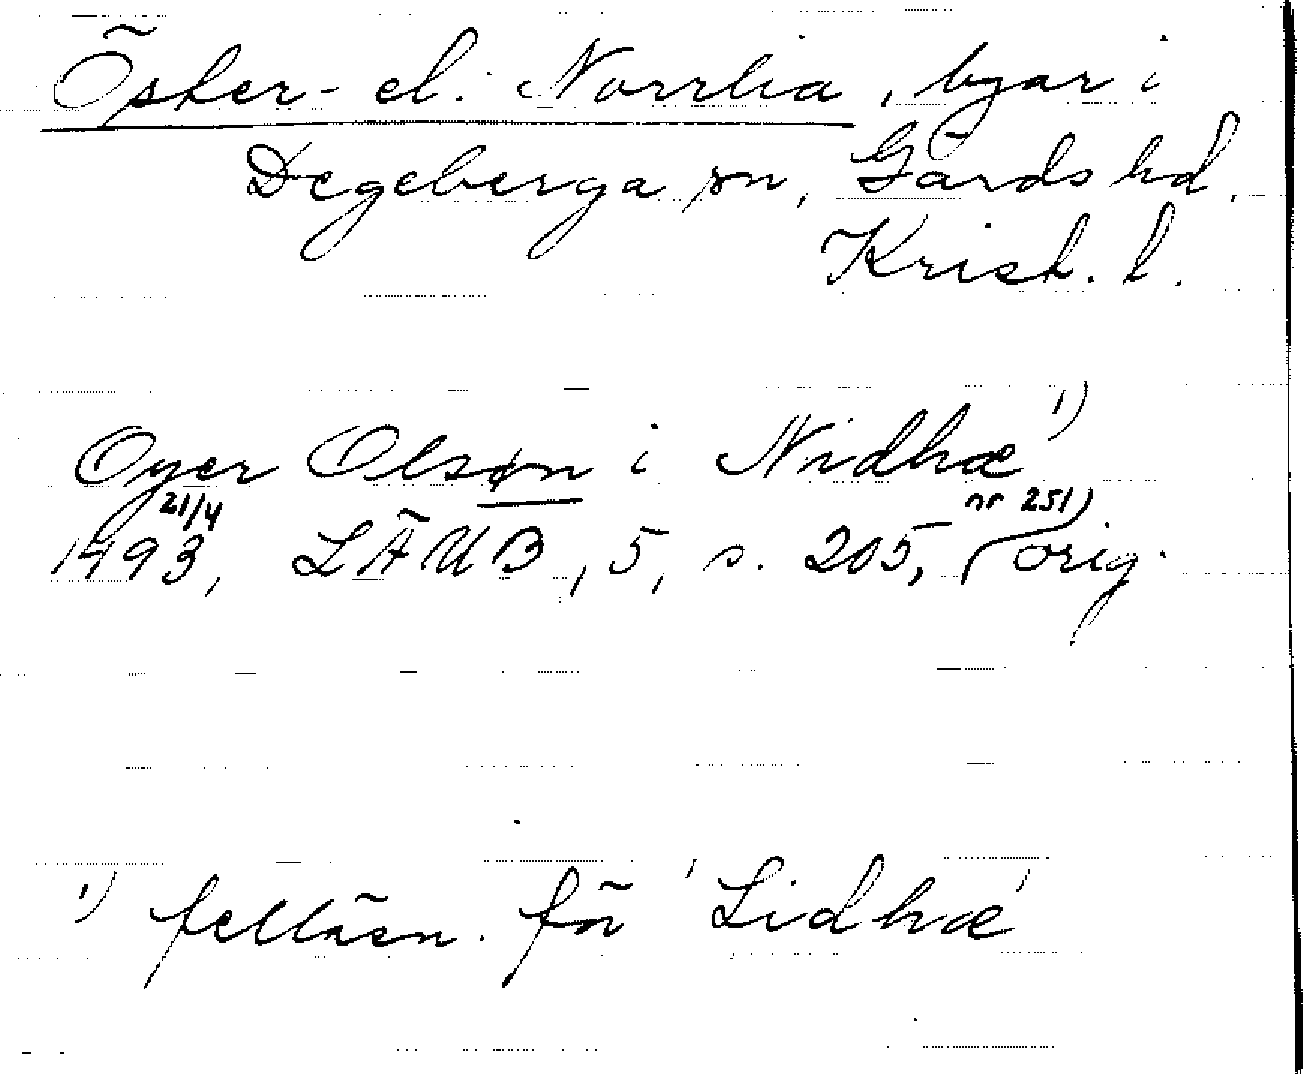 Öster- el. Norrlia, byar i
Degeberga sn, Gärds hd.
Krist. l.
Oyer Olsøn i Nidhæ 1)
21/4 nr 251)
1493, LÄUB, 5, s. 205, (orig.
1) felläsn. för 'Lidhæ'